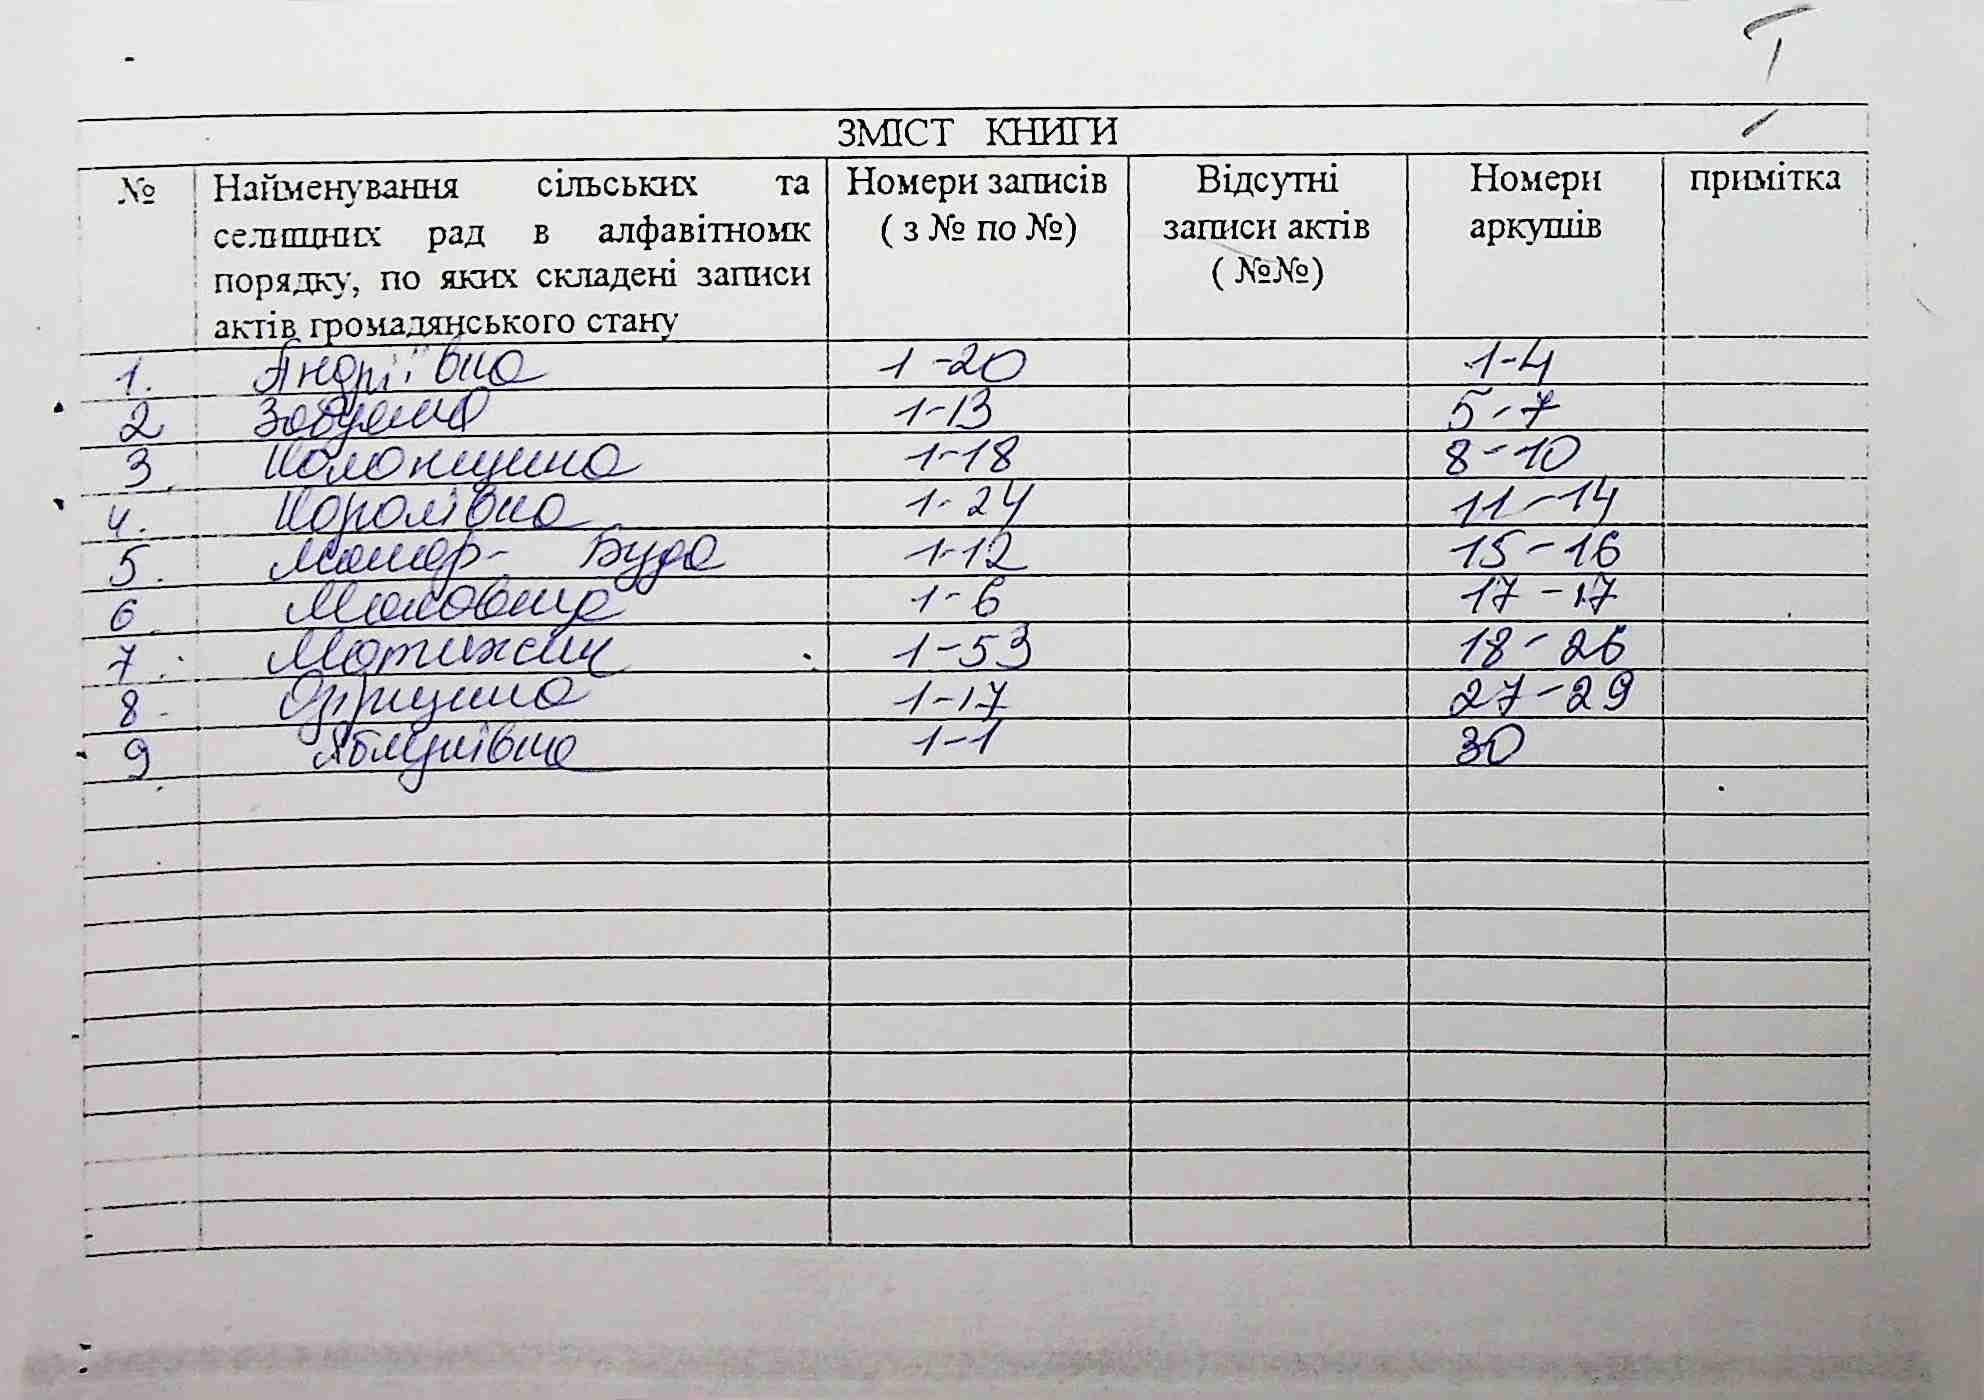 I
ЗМІСТ КНИГИ
№ Найменування сільських та селищних рад в алфавітномк порядку, по яких складені записи актів громадянського стану Номери записів ( з № по №) Відсутні записи актів ( №№) Номери аркушів примітка
1. Андріївка 1-20 1-4
2 Забуяння 1-13 5-7
3. Колонщина 1-18 8-10
4. Королівка 1-24 11-14
5. Макар- Буда 1-12 15-16
6. Маковище 1-6 17-17
7. Мотижин 1-53 18-26
8 1-17 27-29
9 Яблунівка 1-1 30